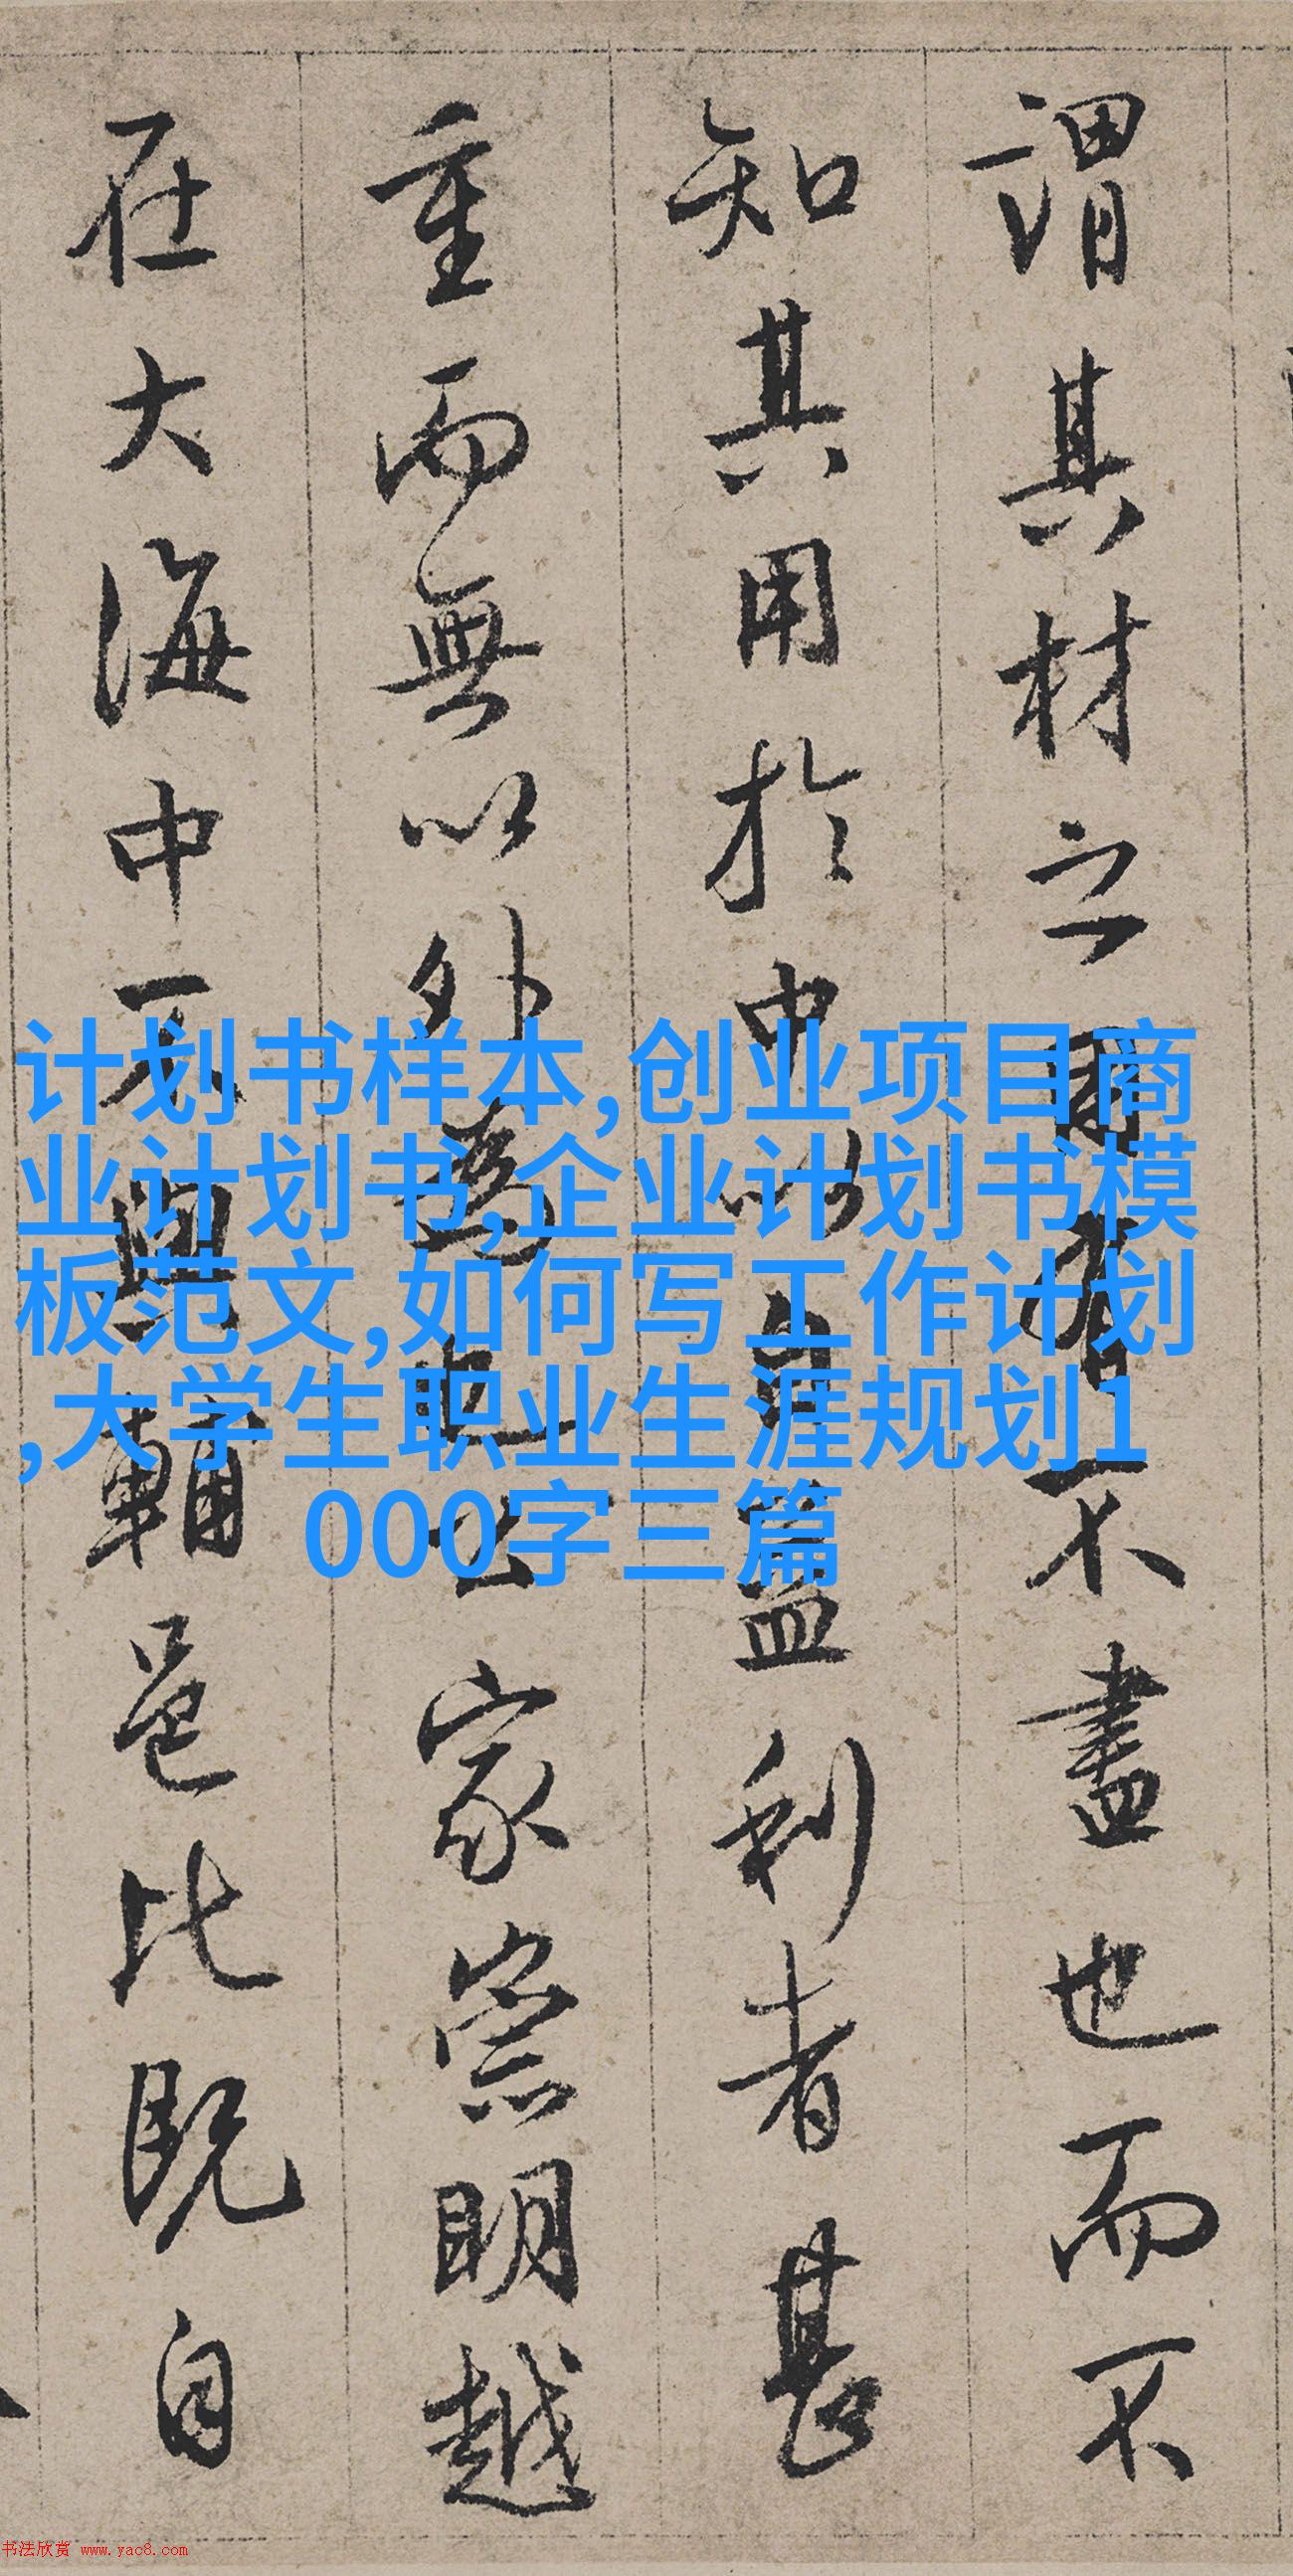 謂其材之有不盡也而不
知其用於中以自益利者甚
重而無以外為也公家崇明越
在大海中不與輔邑比既自
计划书样本,创业项目商
业计划书,企业计划书模
板范文,如何写工作计划
,大学生职业生涯规划1
000字三篇
书法欣赏 www.yac8.com